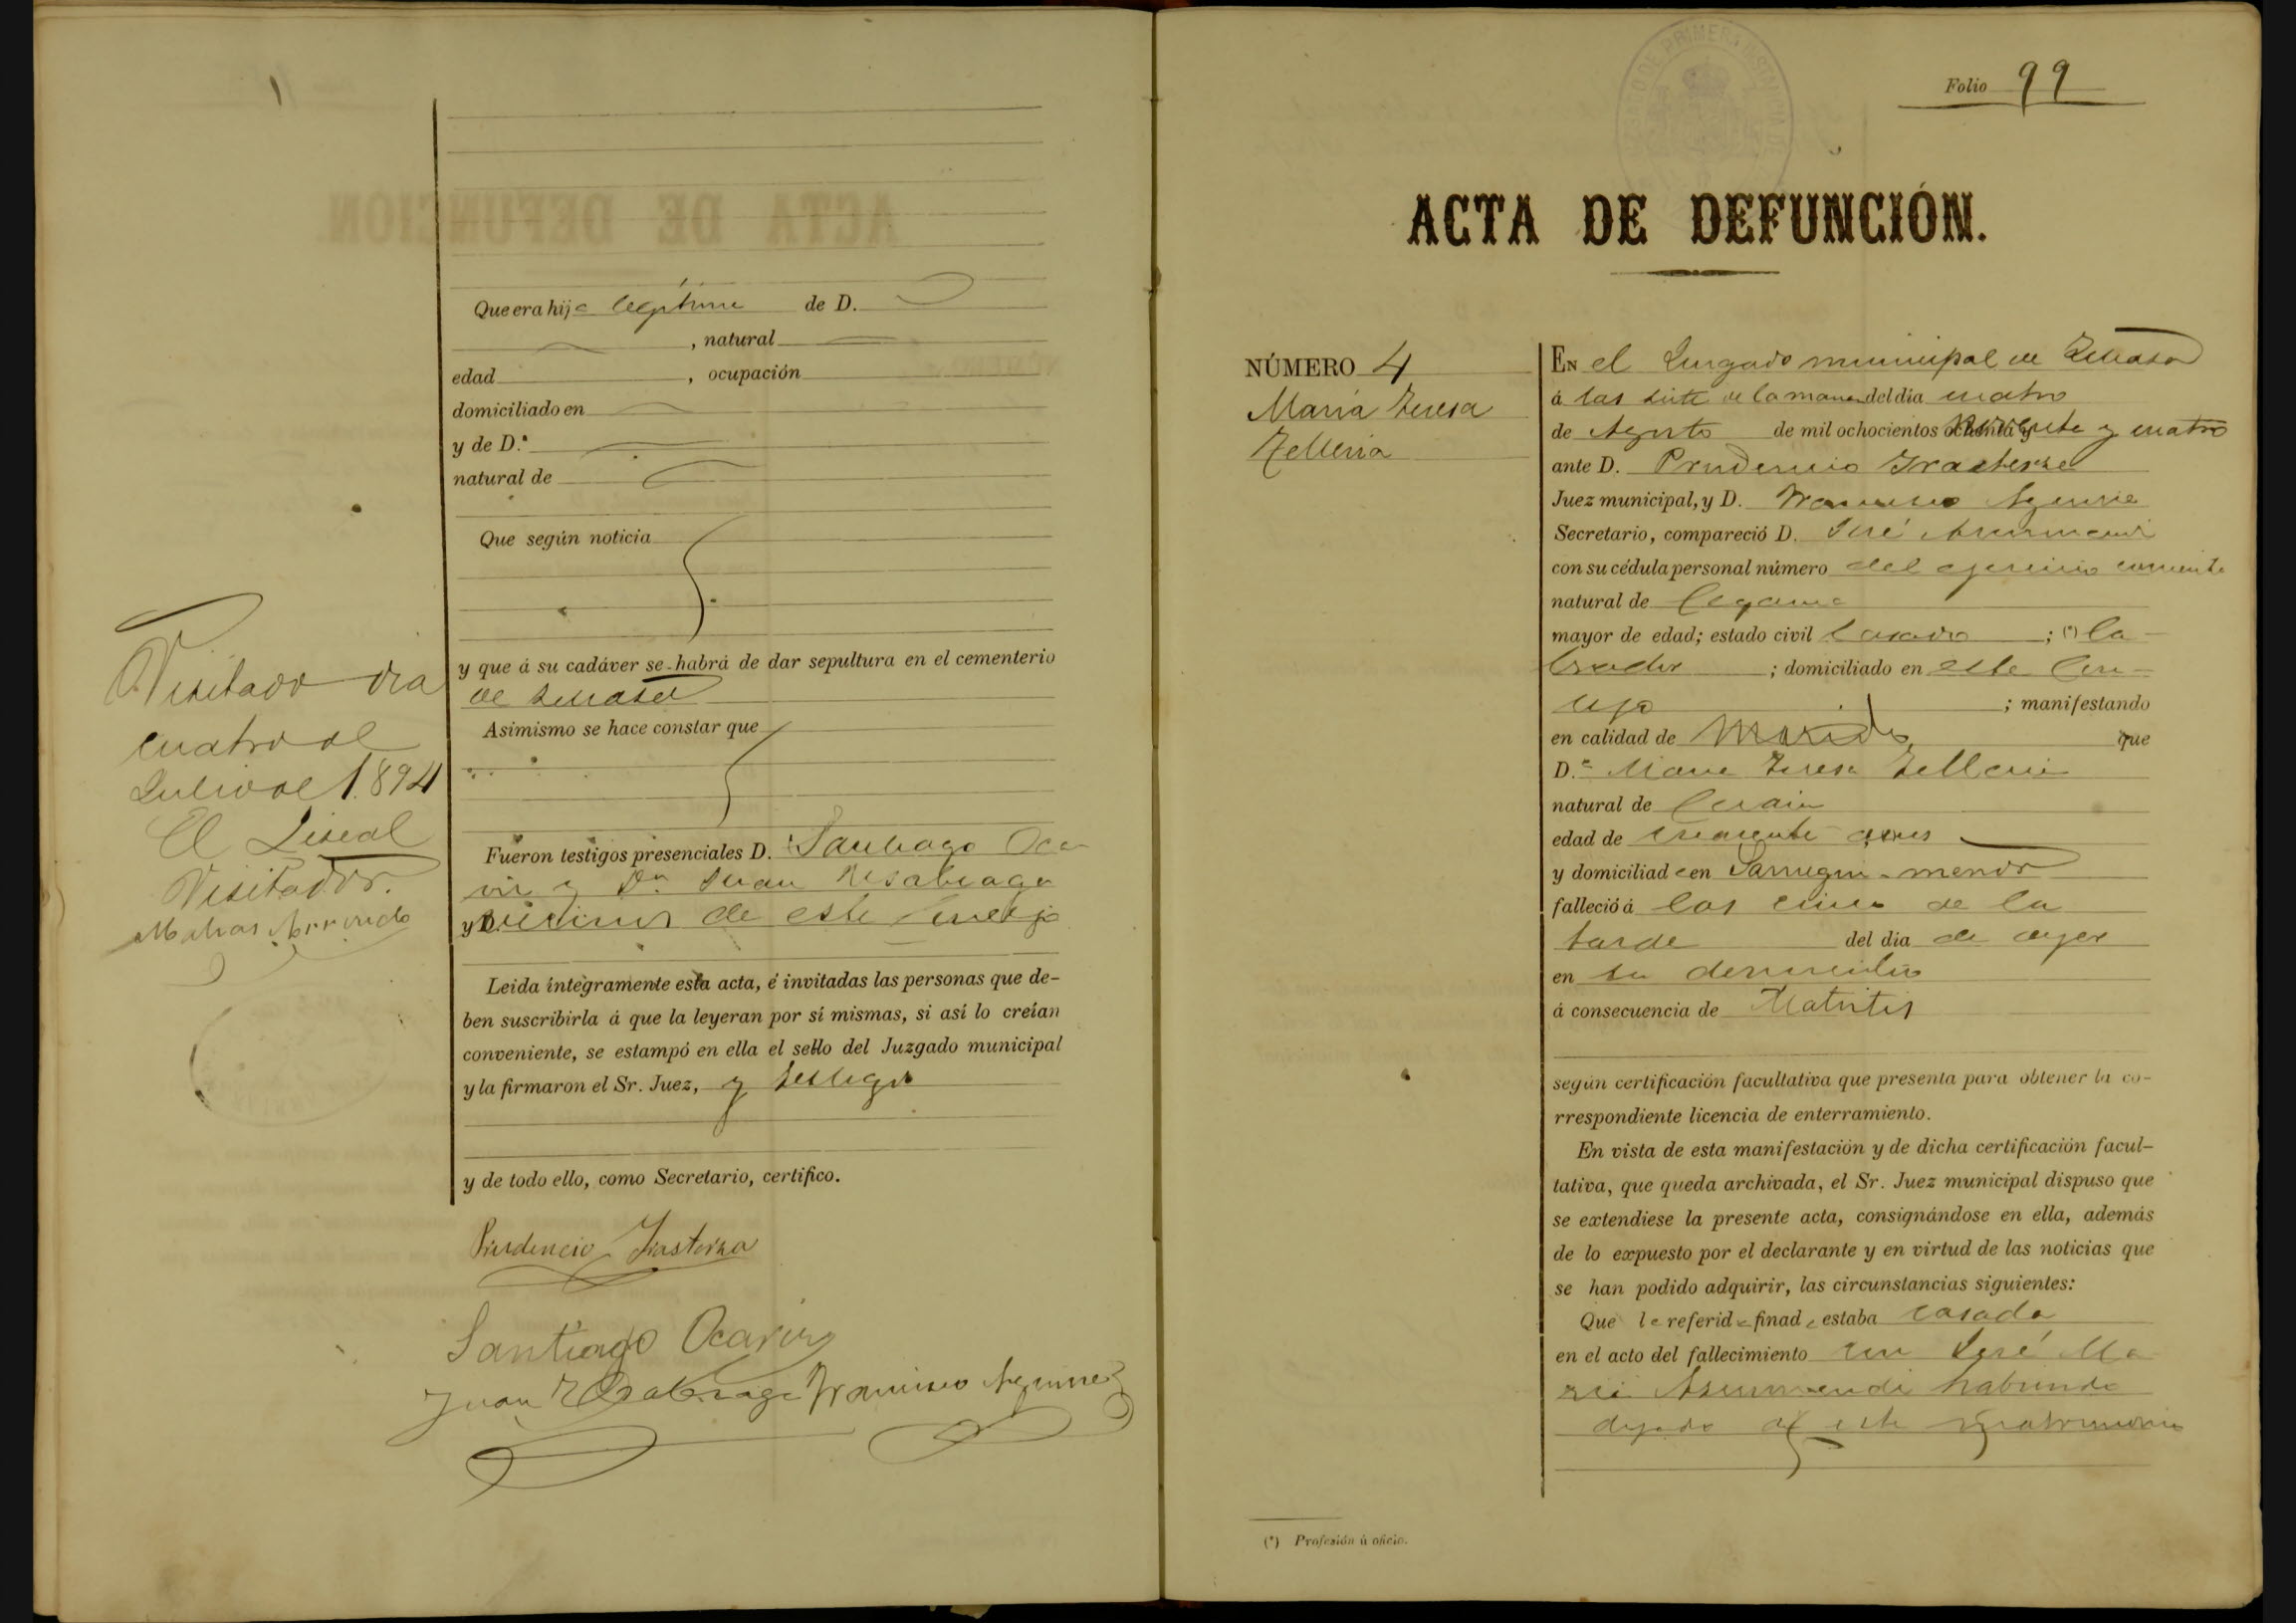 Que era hija legitima de D.
, natural
edad , ocupación
domiciliado en
y de D.ª
natural de
Que según noticia
y que á su cadáver se habrá de dar sepultura en el cementerio
de
Asimismo se hace constar que
Fueron testigos presenciales D. Santiago Oca
viz y Dn Juan
y D. vecinos de este Concejo
Leida íntegramente esta acta, é invitadas las personas que de-
ben suscribirla á que la leyeran por sí mismas, si así lo creían
conveniente, se estampó en ella el sello del Juzgado municipal
y la firmaron el Sr. Juez, y testigos
y de todo ello, como Secretario, certifico.
Prudencio Irastorza
Santiago Ocaviz
Juan Francisco Aguirre
Visitado dia
cuatro de
Julio de 1.894
El Fiscal
Visitador.
Matias
Folio 99
ACTA DE DEFUNCIÓN.
NÚMERO 4
María Teresa
Telleria
EN el Juzgado municipal de
á las siete de la mana del día cuatro
de Agosto de mil ochocientos noventa y cuatro
ante D. Prudencio Irastorza
Juez municipal, y D. Francisco Aguirre
Secretario, compareció D. José Asurmendi
con su cédula personal número del ejercicio corriente
natural de Cegama
mayor de edad; estado civil Casado ; (*) la
brador ; domiciliado en este Con-
cejo ; manifestando
en calidad de Marido, que
D.ª Maria Teresa Telleria
natural de Cerain
edad de años
y domiciliada en menor
falleció á las cinco de la
tarde del dia de ayer
en su domicilio
á consecuencia de Metritis
según certificación facultativa que presenta para obtener la co-
rrespondiente licencia de enterramiento.
En vista de esta manifestación y de dicha certificación facul-
tativa, que queda archivada, el Sr. Juez municipal dispuso que
se extendiese la presente acta, consignándose en ella, además
de lo expuesto por el declarante y en virtud de las noticias que
se han podido adquirir, las circunstancias siguientes:
Que la referida finada estaba casada
en el acto del fallecimiento con José Ma
ria Asurmendi habiendo
dejado de este matrimonio
(*) Profesión ú oficio.